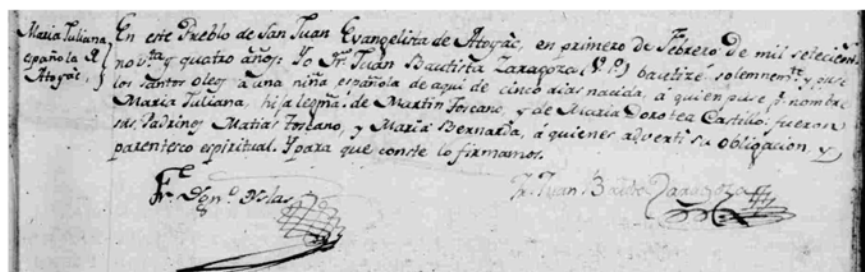 Maria Juliana,
española Rl
Atoyac,
En este Pueblo de San Juan Evangelista de Atoyac, en primero de Febrero de mil setecien.
nov.ta y quatro años: Yo Fr. Juan Bautista Zaragoza (V.P.) bautizé solemnem.te y puse
los santos oleos á una niña española de aqui de cinco dias nacida, á quien puse p.r nombre
Maria Juliana, hija legma. de Martin Toscano, y de Maria Dorotea Castillo: fueron
sus Padrinos Matias Toscano, y Maria Bernarda, á quienes advertí su obligacion, y
parentesco espiritual. Y para que conste lo firmamos.
Fr.
Fr. Juan Bau.ta Zaragoza